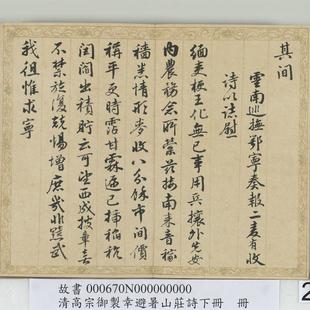 其间
雲南巡撫鄂寧奏報二麦有收
詩以誌慰
緬吏梗王化無已事用兵攘外先安
内農務念所縈兹接南来音稼
穡悉情形麥收八分餘市間價
稱平更時霑甘霖遍已插稲秔
閭閻出積貯云可望西成披章喜
不禁旋復兢惕增庶幾非窮武
我但惟求寧
故書 000670N000000000
清高宗御製幸避暑山莊詩下冊 冊